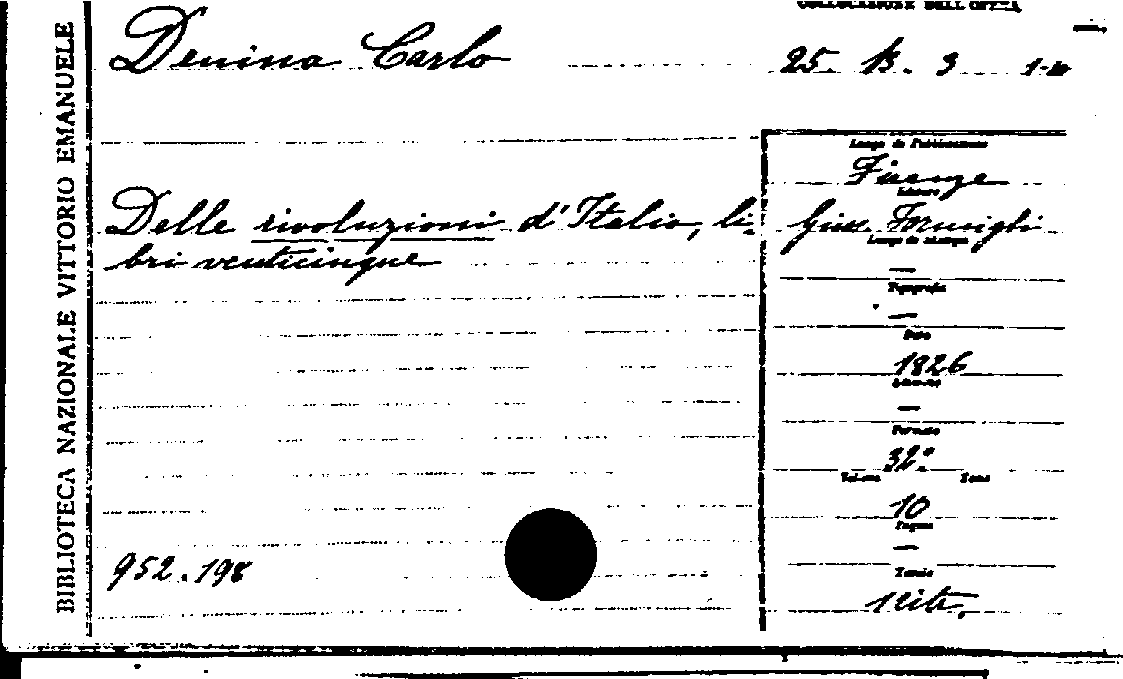 BIBLIOTECA NAZIONALE VITTORIO EMANUELE
COLLOCAZIONE DELL'OPERA
Denina Carlo
25. B. 3 1-10
Delle rivoluzioni d'Italia, li-
bri venticinque
952.198
Luogo di Pubblicazione
Firenze
Editore
Gius. Formigli
Luogo di stampa
—
Tipografia
—
Data
1826
—
Formato
32º
Volume Tomo
10
Pagine
—
Tavole